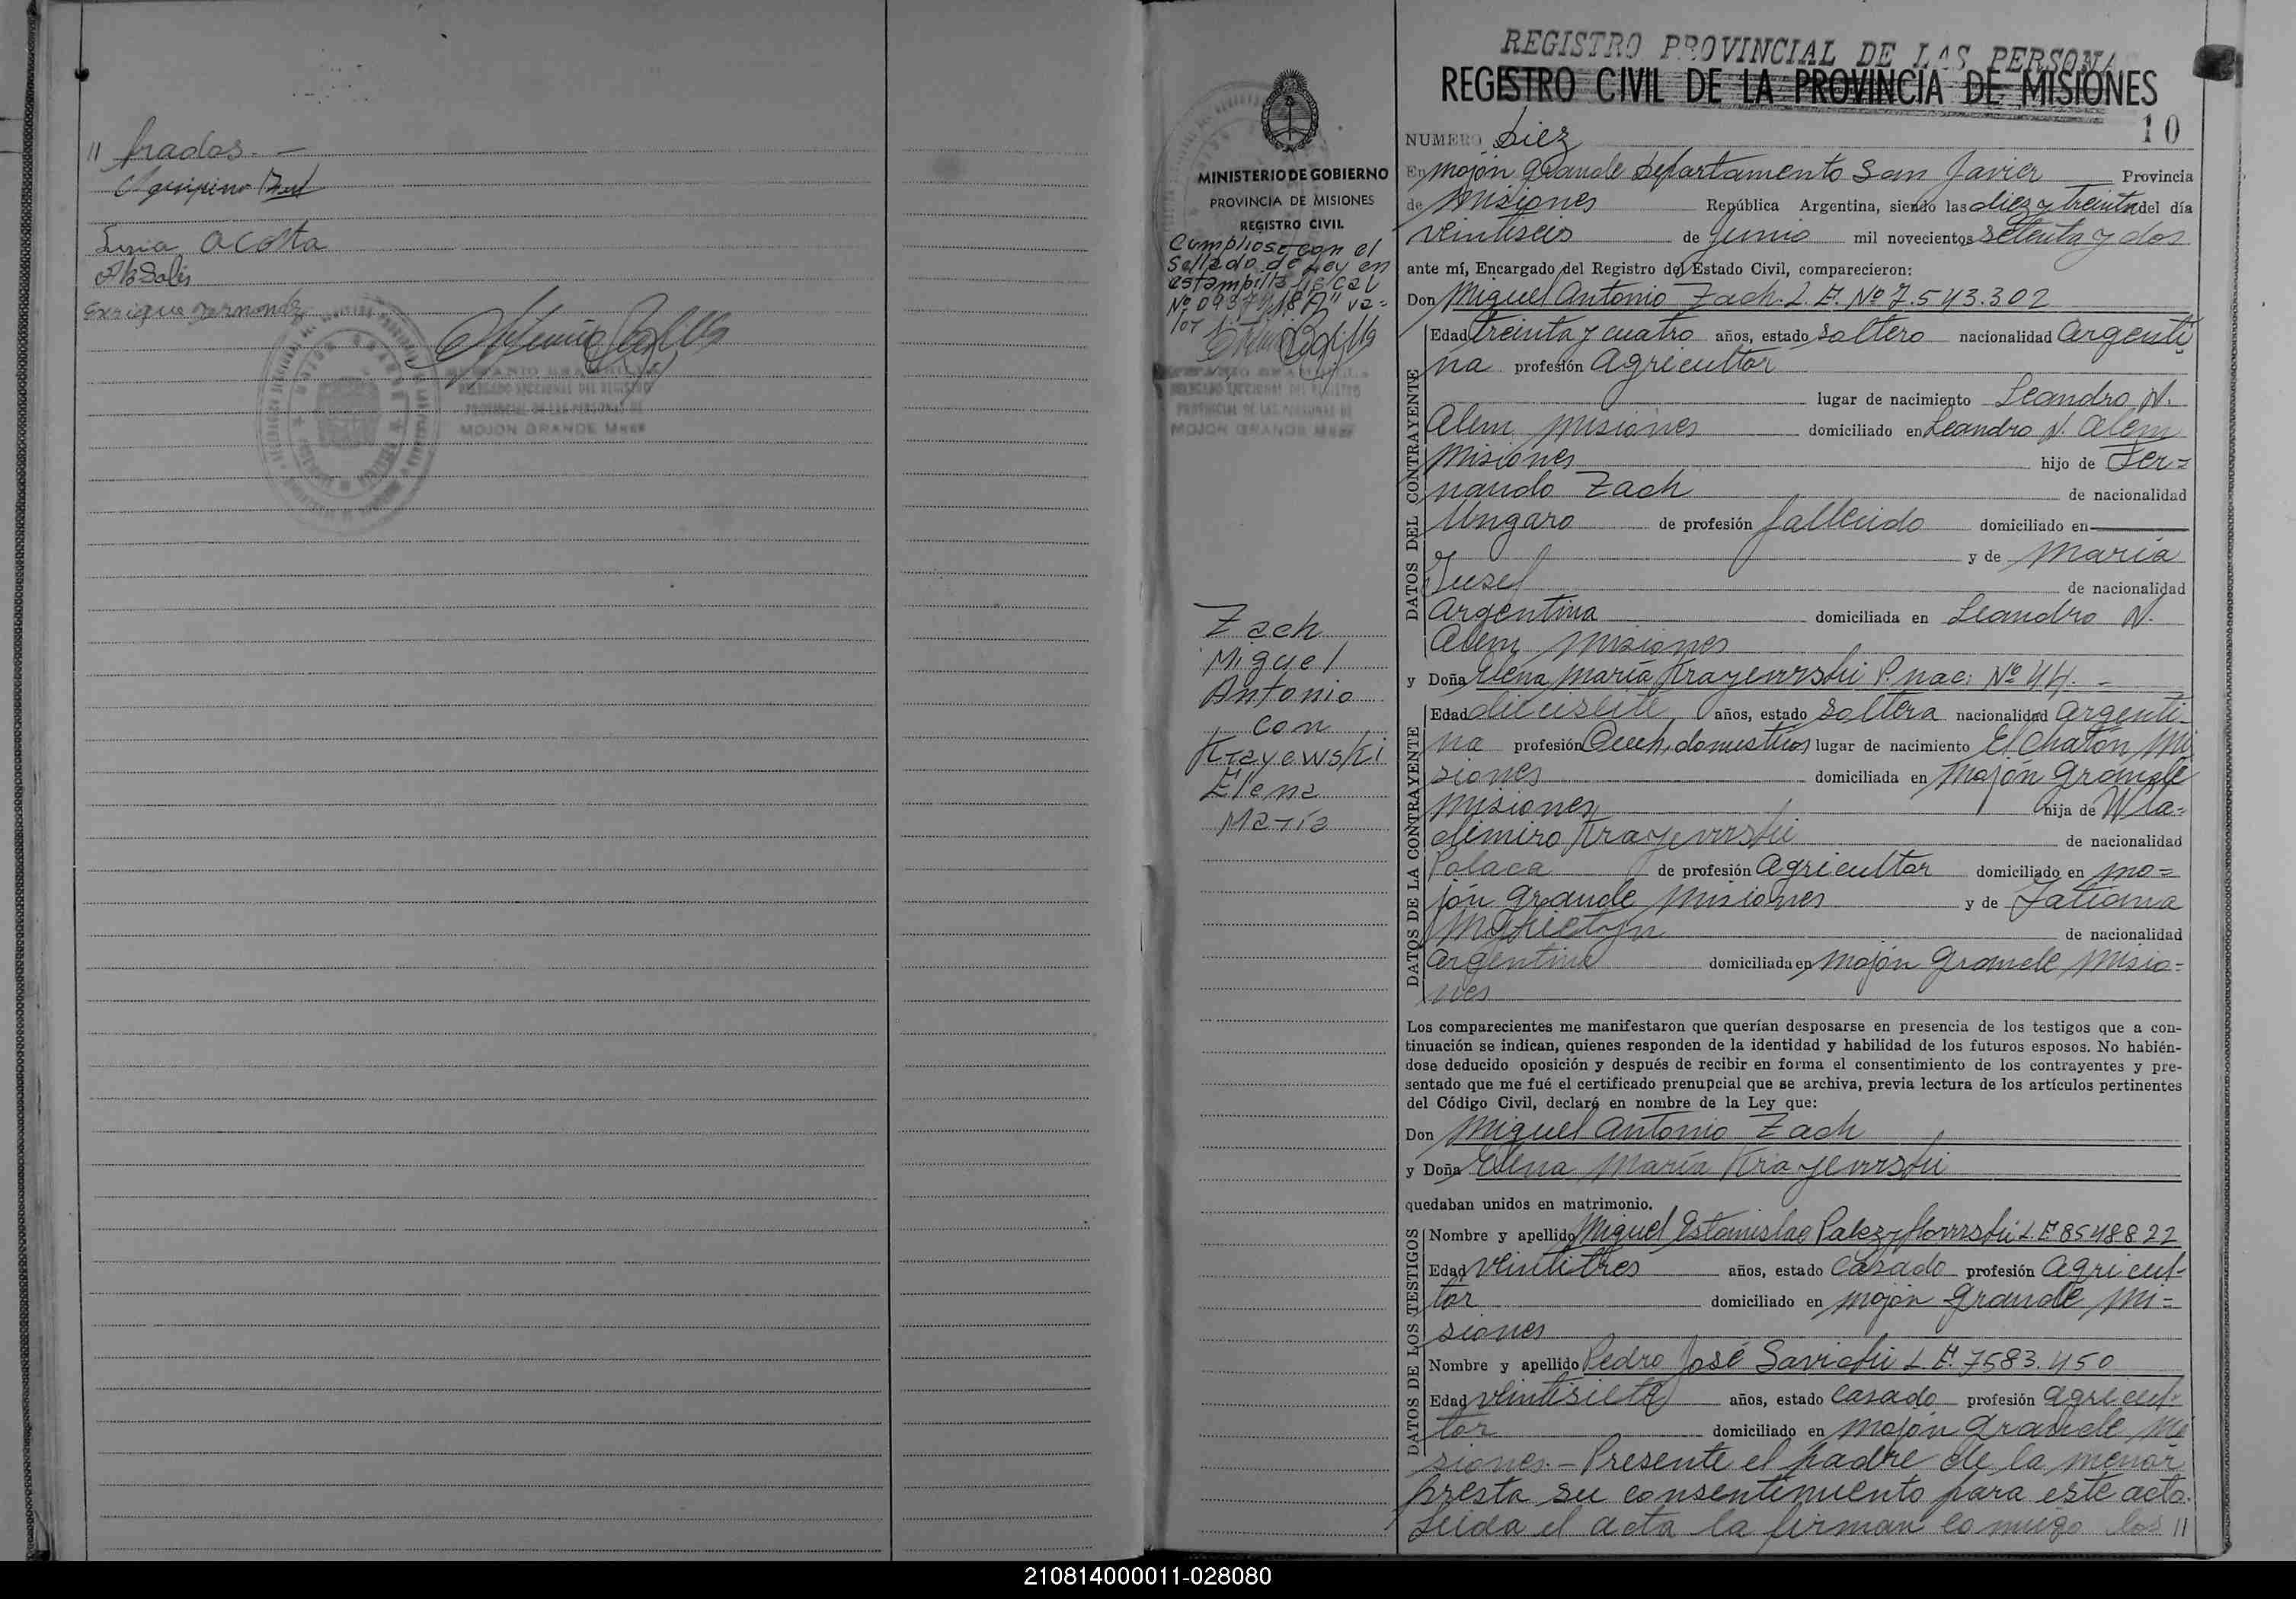 // frados. —
Agripino
Lucia Acosta
Enrique Fernandz
MOJON GRANDE Mnes
REGISTRO PROVINCIAL DE LAS PERSONA
REGISTRO CIVIL DE LA PROVINCIA DE MISIONES
10
MINISTERIO DE GOBIERNO
PROVINCIA DE MISIONES
REGISTRO CIVIL
Cumpliose con el
Sellado de Ley en
estampilla fiscal
DELEGADO SECCIONAL DEL REGISTRO
PROVINCIAL DE LAS PERSONAS DE
MOJON GRANDE Mnes
Zach
Miguel
Antonio
con
Krayewski
Elena
María
NUMERO Diez
En Mojón Grande Departamento San Javier Provincia
de Misiones República Argentina, siendo las diez y treinta del día
veintiseis de Junio mil novecientos setenta y dos
ante mí, Encargado del Registro del Estado Civil, comparecieron:
Don Miguel Antonio Zach. L.E. Nº 7.543.302
DATOS DEL CONTRAYENTE
Edad treinta y cuatro años, estado soltero nacionalidad Argenti
na profesión Agricultor
lugar de nacimiento Leandro N.
Alem Misiones domiciliado en Leandro N. Alem
Misiones hijo de Fer=
nando Zach de nacionalidad
Ungaro de profesión fallecido domiciliado en
y de María
de nacionalidad
Argentina domiciliada en Leandro N.
Alem Misiones
y Doña Elena María Krayewski P. nac: Nº 44. -
DATOS DE LA CONTRAYENTE
Edad diecisiete años, estado soltera nacionalidad Argenti-
na profesión Queh, domesticos lugar de nacimiento El Chatón Mi
siones domiciliada en Mojón Grande
Misiones hija de Wla=
dimiro Krayewski de nacionalidad
Polaca de profesión Agricultor domiciliado en Mo=
jón Grande Misiones y de Tatiana
de nacionalidad
Argentina domiciliada en Mojón Grande Misio=
nes
Los comparecientes me manifestaron que querían desposarse en presencia de los testigos que a con-
tinuación se indican, quienes responden de la identidad y habilidad de los futuros esposos. No habién-
dose deducido oposición y después de recibir en forma el consentimiento de los contrayentes y pre-
sentado que me fué el certificado prenupcial que se archiva, previa lectura de los artículos pertinentes
del Código Civil, declaré en nombre de la Ley que:
Don Miguel Antonio Zach
y Doña Elena María Krayewski
quedaban unidos en matrimonio.
DATOS DE LOS TESTIGOS
Nombre y apellido Miguel Estanislao L.E 8548822
Edad veintitres años, estado casado profesión Agricul-
tor domiciliado en Mojón Grande Mi=
siones
Nombre y apellido Pedro José Savicki L.E. 7583.450
Edad veintisiete años, estado casado profesión agricul-
tor domiciliado en Mojón Grande Mi
siones. - Presente el padre de la menor
presta su consentimiento para este acto.
Leida el acta la firman conmigo los //
210814000011-028080